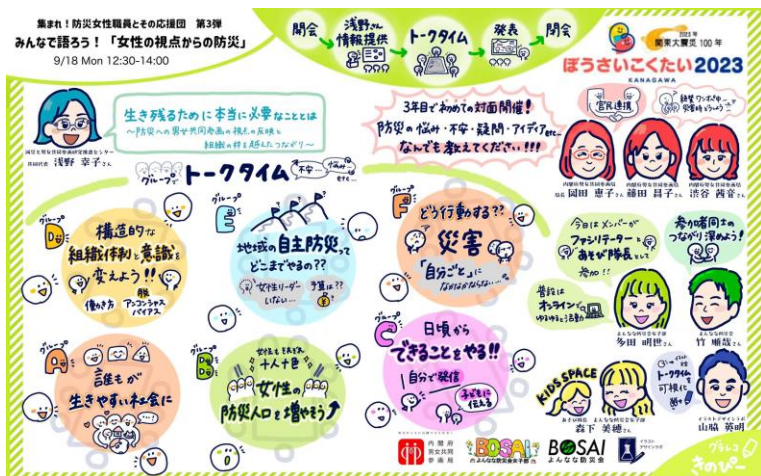 集まれ！防災女性職員とその応援団 第3弾
みんなで語ろう！「女性の視点からの防災」
9/18 Mon 12:30-14:00
開会
浅野さん
情報提供
トークタイム
発表
閉会
2023年
関東大震災 100年
ぼうさいこくたい2023
KANAGAWA
生き残るために本当に必要なこととは
〜防災への男女共同参画の視点の反映と
組織の枠を越えたつながり〜
減災と男女共同参画研修推進センター
共同代表 浅野 幸子さん
3年目で初めての対面開催！
防災の悩み・不安・疑問・アイディアetc...
なんでも教えてください!!!
官民連携
内閣府男女共同参画局
局長 岡田 恵子さん
内閣府男女共同参画局
藤田 昌子さん
内閣府男女共同参画局
渋谷 茜音さん
グループで
トークタイム
不安…
悩み…
グループ
D
構造的な
組織体制と意識を
変えよう!!
脱
働き方
アンコンシャス
バイアス
グループ
E
地域の自主防災って
どこまでやるの??
女性リーダー
いない…
予算は??
グループ
F
どう行動する??
災害
「自分ごと」に
なかなかならない…
今日はメンバーが
ファシリテーターと
あそび隊長として
参加!!
参加者同士の
つながり深めよう！
普段は
オンラインで
ゆるゆると活動
よんなな防災会女子部
多田 明世さん
よんなな防災会
竹 順哉さん
グループ
A
誰もが
生きやすい社会に
グループ
B
女性もそれぞれ
十人十色
女性の
防災人口を増やそう
グループ
C
日頃から
できることをやる!!
自分で発信
子どもに
伝える
KIDS SPACE
あそび隊長
よんなな防災会女子部
森下 美穂さん
イラストで
トークタイムを
可視化
イラストデザインラボ
山脇 英明
内閣府
男女共同
参画局
BOSAI
よんなな防災会女子部
BOSAI
よんなな防災会
イラスト
デザインラボ
グラレコ
きのぴー